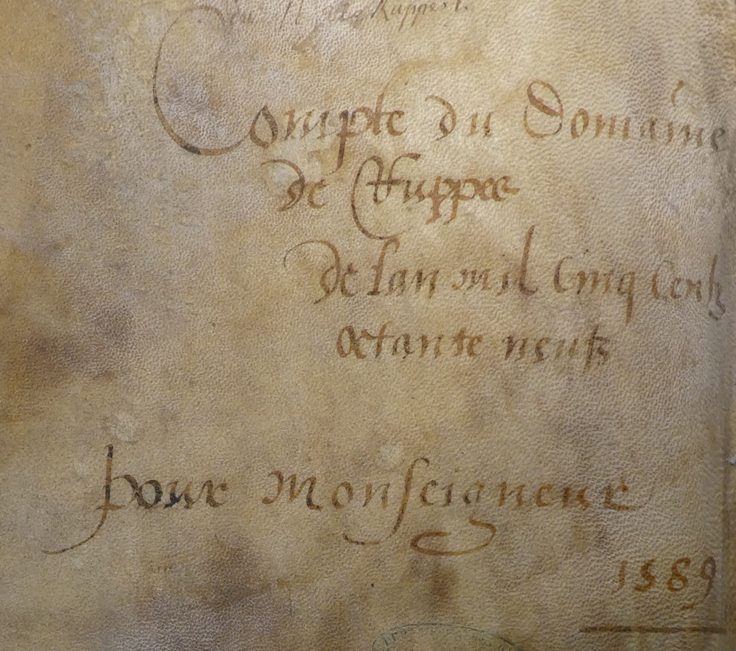 Ruppes.
Compte du Domaine
de Ruppes
de lan mil cinq centz
octante neufz
pour Monseigneur
1589